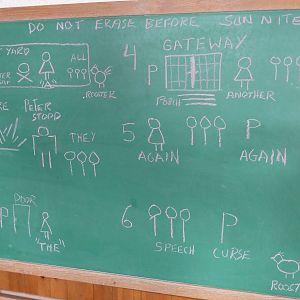 DO NOT ERASE BEFORE SUN NITE
YARD
ALL
ROOSTER
4 GATEWAY
P
PORCH
ANOTHER
PETER
STOOD
THEY
5 P
AGAIN
AGAIN
DOOR
P
"THE"
6 P
SPEECH CURSE
ROOST